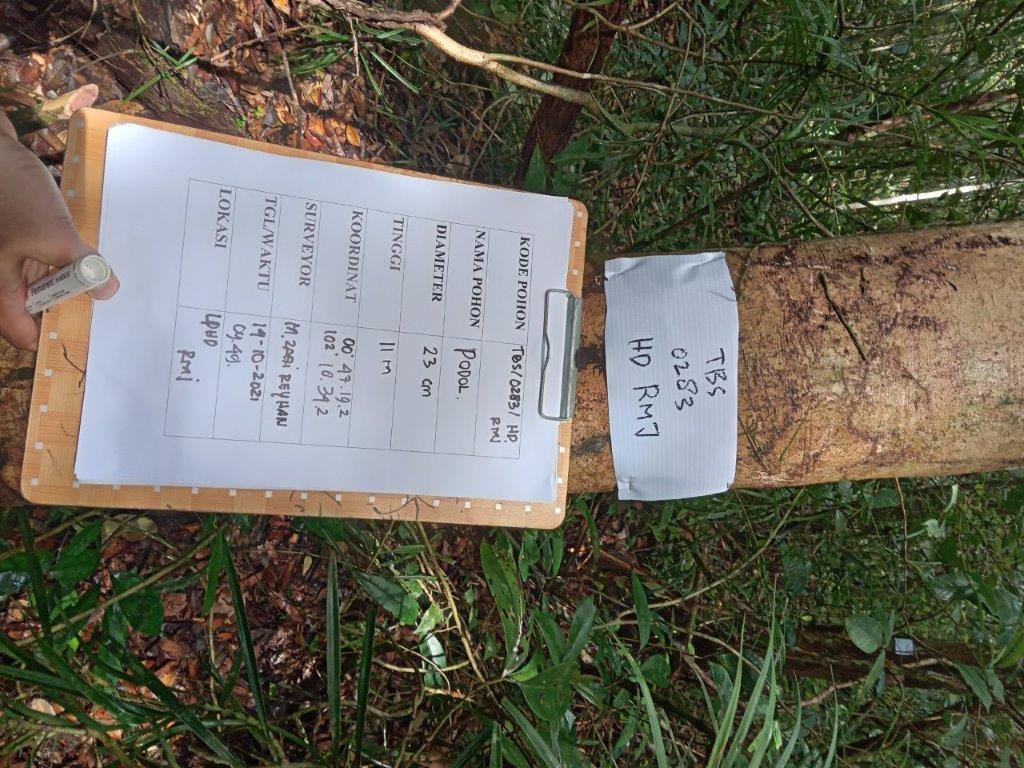 TBS
0283
HD RMJ
KODE POHON TBS/0283/ HD
RMJ
NAMA POHON PODOL.
DIAMETER 23 cm
TINGGI 11 m
KOORDINAT 00° 47. 19. 2
102° 10 34 2
SURVEYOR M. ZAKI REYHAN
TGL/WAKTU 19-10-2021
09.40.
LOKASI LPHD
RMJ
PERMANENT MARKER